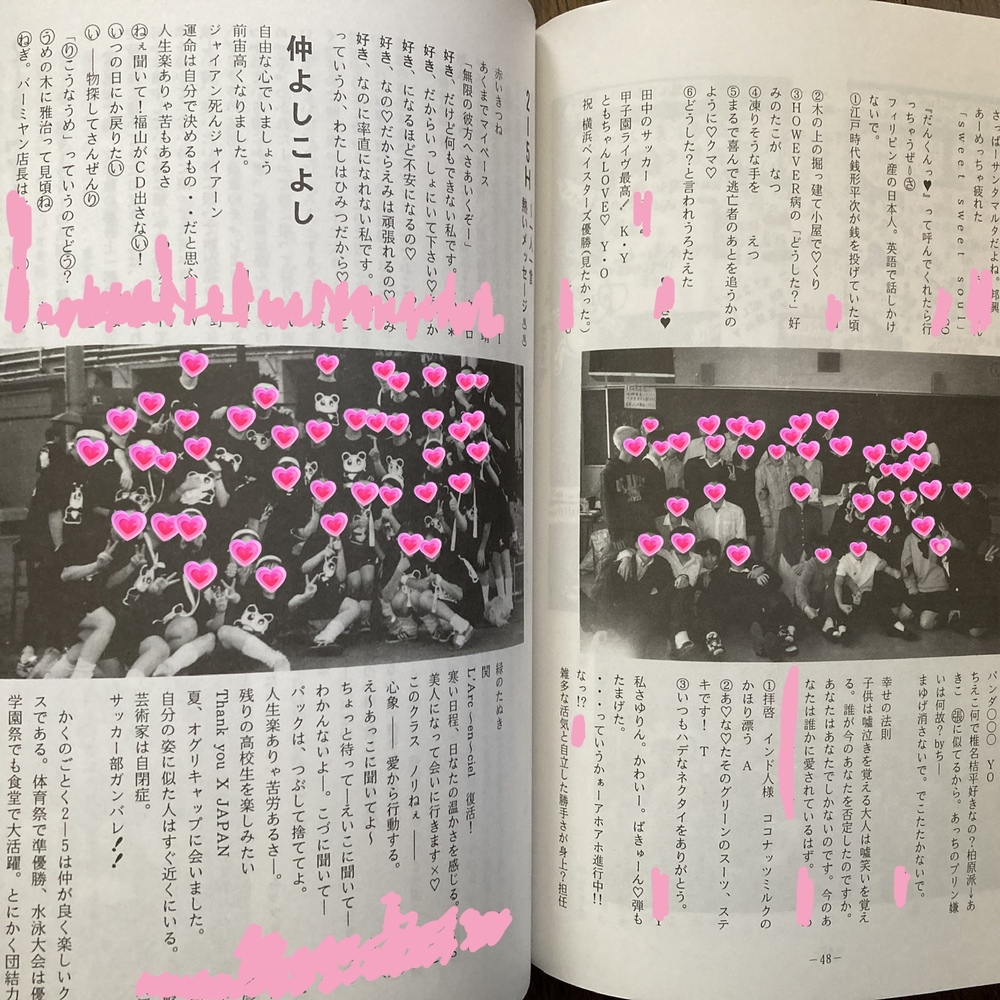 さらばーサンタマルタだよね。
あーめっちゃ疲れた
「sweet sweet soul」
『だんくんっ♥』って呼んでくれたら行
っちゃうぜー㊂
フィリピン産の日本人。英語で話しかけ
ないで。
①江戸時代銭形平次が銭を投げていた頃
②木の上の掘っ建て小屋で♡くり
③HOWEVER病の「どうした?」好
みのたこが なつ
④凍りそうな手を えつ
⑤まるで喜んで逃亡者のあとを追うかの
ように♡クマ♡
⑥どうした?と言われうろたえた
田中のサッカー
甲子園ライヴ最高! K・Y
ともちゃんLOVE♡ Y・O
祝 横浜ベイスターズ優勝(見たかった。)
パンダ○○○ YO
ちえこ何で椎名桔平好きなの?柏原派→あ
きこ ㊂に似てるから。あっちのプリン嫌
いは何故? byちー
まゆげ消さないで。でこたたかないで。
幸せの法則
子供は嘘泣きを覚える大人は嘘笑いを覚え
る。誰が今のあなたを否定したのですか。
あなたはあなたでしかないのです。今のあ
なたは誰かに愛されているはず。
①拝啓 インド人様 ココナッツミルクの
かほり漂う A
②あ♡な♡たそのグリーンのスーツ、ステ
キです! T
③いつもハデなネクタイをありがとう。
私さゆりん。かわいー。ばきゅーん♡弾も
たまげた。
・・・っていうかぁーアホアホ進行中!!
なっ!?
雑多な活気と自立した勝手さが身上?担任
―48―
2―5H
熱いメッセージ
赤いきつね
あくまでマイペース
「無限の彼方へさあいくぞー」
好き、だけど何もできない私です。
好き、だからいっしょにいて下さい♡
好き、になるほど不安になるの♡
好き、なの♡だからえみは頑張れるの♡
好き、なのに率直になれない私です。
っていうか、わたしはひみつだから♡
仲よしこよし
自由な心でいましょう
前宙高くなりました。
ジャイアン死んジャイアーン
運命は自分で決めるもの・・だと思ふ
人生楽ありゃ苦もあるさ
ねぇ聞いて!福山がCD出さない!
いつの日にか戻りたい
い――物探してさんぜんり
「りこうなうめ」っていうのでどう?
うめの木に雅治って見頃ね
ねぎ。バーミヤン店長は
緑のたぬき
関
L'Arc~en~ciel 復活!
寒い日程、日なたの温かさを感じる。
美人になって会いに行きます×♡
このクラス ノリねぇ ――
心象 ――愛から行動する。
え~あっこに聞いてよ~
ちょっと待ってーえいこに聞いてー
わかんないよー。こづに聞いてー
バックは、つぶして捨ててよ。
人生楽ありゃ苦労あるさー。
残りの高校生を楽しみたい
Thank you X JAPAN
夏、オグリキャップに会いました。
自分の姿に似た人はすぐ近くにいる。
芸術家は自閉症。
サッカー部ガンバレ!!
かくのごとく2―5は仲が良く楽しいク
スである。体育祭で準優勝、水泳大会は優
学園祭でも食堂で大活躍。とにかく団結力